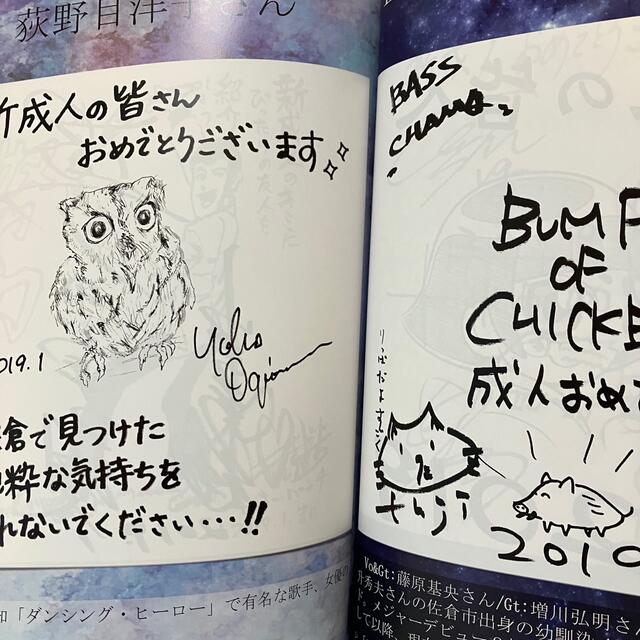 荻野目洋子さん
成人の皆さん
おめでとうございます
2019.1
Yoko
倉で見つけた
粋な気持ちを
れないでください…!!
「ダンシング・ヒーロー」で有名な歌手、女優の
BASS
CHAMA
BUMP
OF
CHICKE
成人おめ
2019
Vo&Gt:藤原基央さん/Gt:増川弘明さ
升秀夫さんの佐倉市出身の幼馴染
メジャーデビュー
て以降、